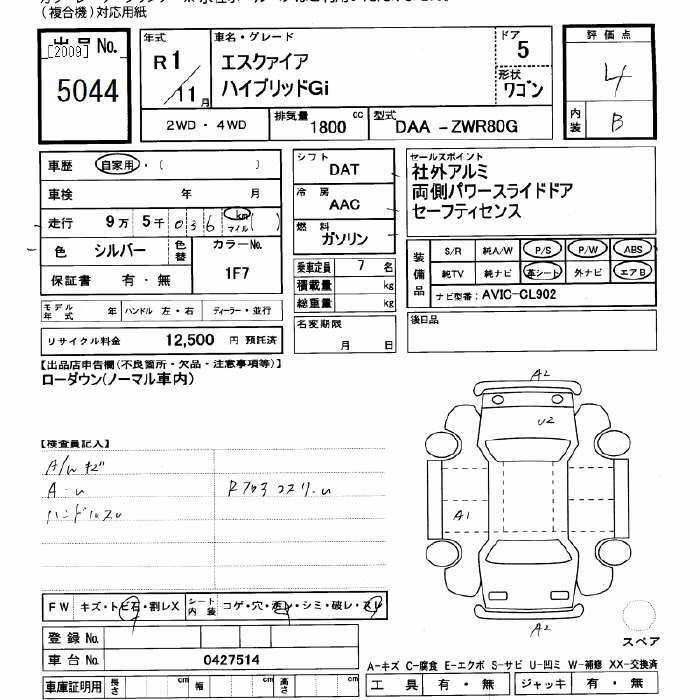 (複合機)対応用紙
出品 No.
[2009]
5044
年式
R1/11月
車名・グレード
エスクァイア
ハイブリッドGi
ドア
5
形状
ワゴン
評価点
4
内装
B
2WD・4WD
排気量 1800 cc
型式 DAA -ZWR80G
車歴 自家用・( )
車検 年 月
走行 9万 5千 036 km マイル ( )
色 シルバー
色替
カラーNo.
1F7
保証書 有・無
シフト
DAT
冷房
AAC
燃料
ガソリン
セールスポイント
社外アルミ
両側パワースライドドア
セーフティセンス
乗車定員 7 名
積載量 kg
総重量 kg
装備品
S/R 純A/W P/S P/W ABS
純TV 純ナビ 革シート 外ナビ エアB
ナビ型番: AVIC-CL902
モデル年式 年 ハンドル 左・右 ディーラー・並行
名変期限
月 日
後日品
リサイクル料金 12,500 円 預託済
【出品店申告欄(不良箇所・欠品・注意事項等)】
ローダウン(ノーマル車内)
A2
U2
A1
A2
【検査員記入】
A/W キズ
ハンドルスレ
FW キズ・トビ石・割レX
シート内装 コゲ・穴・汚レ・シミ・破レ・スレ
登録 No.
車台 No. 0427514
スペア
A-キズ C-腐食 E-エクボ S-サビ U-凹ミ W-補修 XX-交換済
車庫証明用 長さ cm 幅 cm 高さ cm
工具 有・無 ジャッキ 有・無